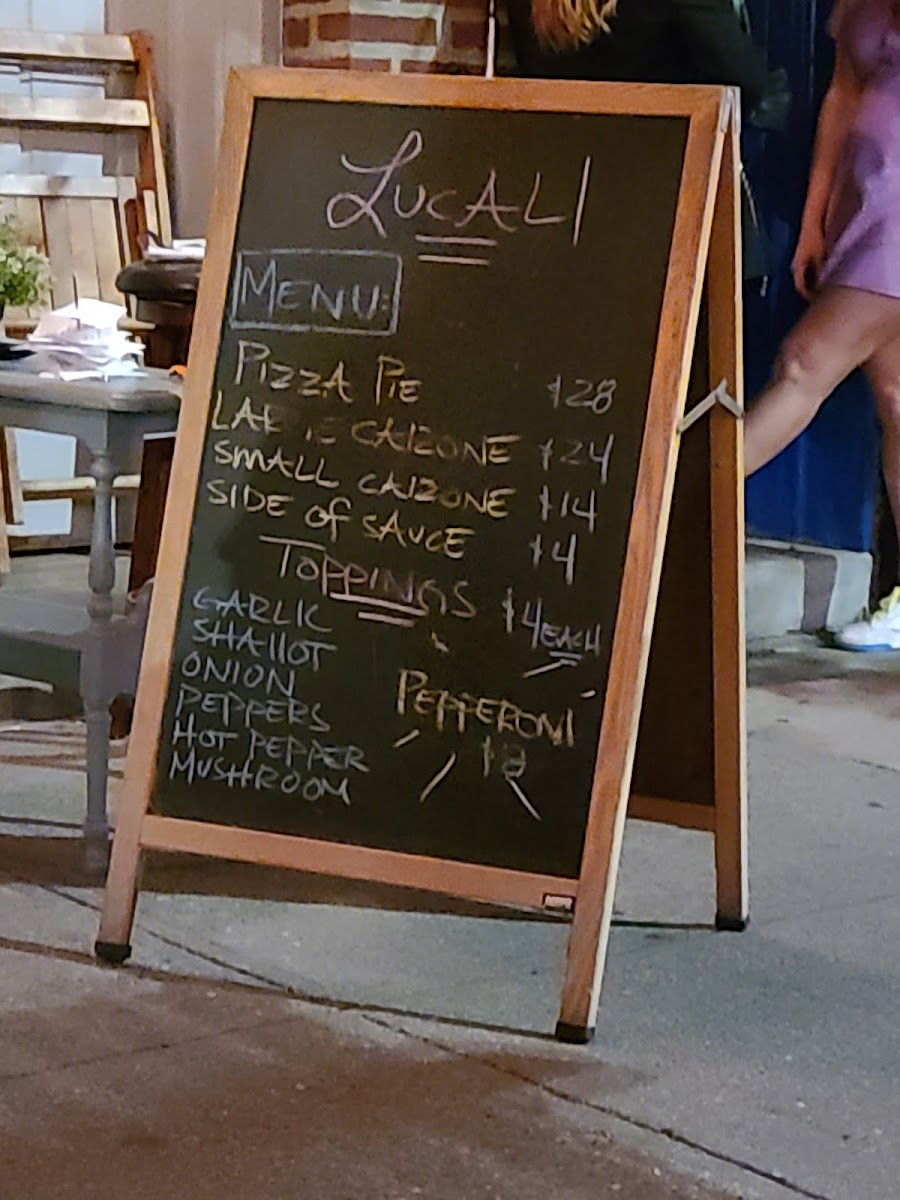 LUCALI
MENU:
PIZZA PIE $28
LARGE CALZONE $24
SMALL CALZONE $14
SIDE of SAUCE $4
TOPPINGS
$4 EACH
GARLIC
SHAllOT
ONION
PEPPERS
HOT PEPPER
MUSHROOM
PEPPERONI
$8